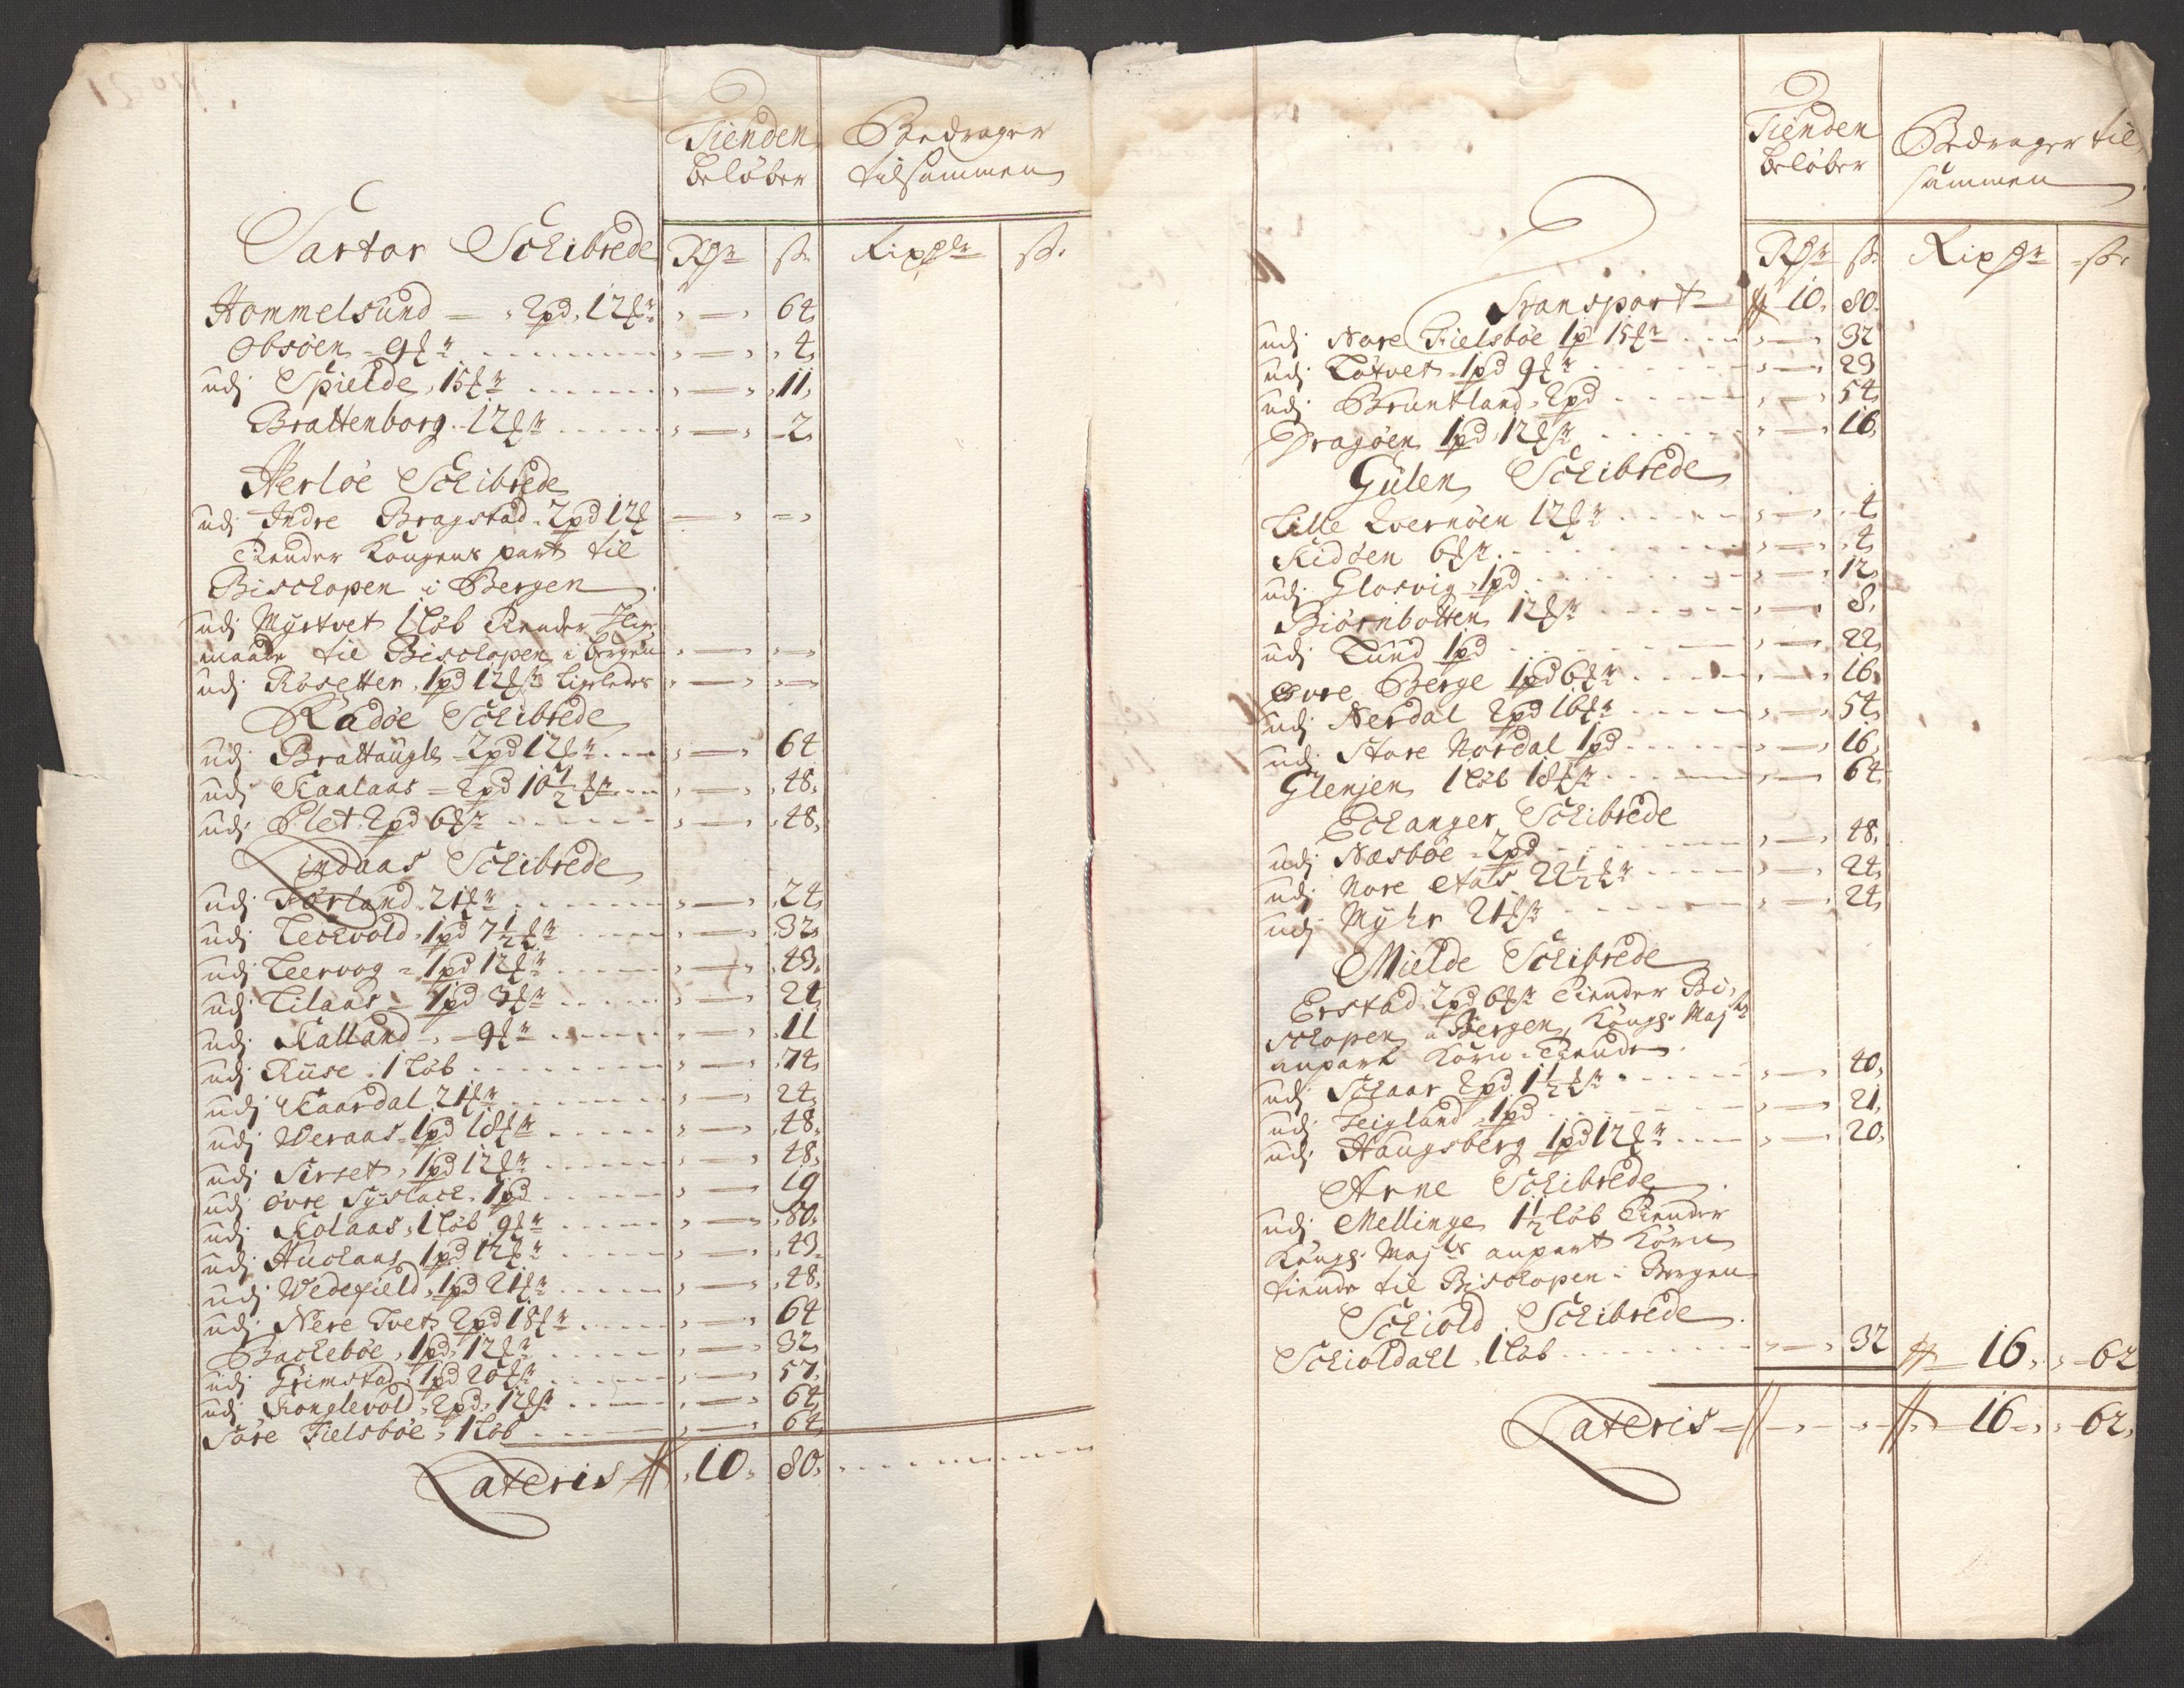 Tienden
beløber
Bedrager
tilsammen
Sartor Schibrede
Rdr
s.
Rixdlr
s.
Hommelsund 2pd 12 mr 64
Obsøen 9 mr 4
udj Spielde 15 mr 11
Brattenborg 12 mr 2
Herløe Schibrede
udj Indre Bragstad 2pd 12
Tiender Kongens part til
Bischopen i Bergen
udj Myrtvet 1 løb Tiender
maade til Bischopen i Bergen
udj Rosetter 1pd 12 mr ligeledes
Radøe Schibrede
udj Brattaugle 2pd 12 mr 64
udj Kaalaas 2pd 10 1/2 mr 48
udj Plet 2pd 6 mr 48
Lindaas Schibrede
udj Førland 21 mr 24
udj Lechvold 1pd 7 1/2 mr 32
udj Leervog 1pd 12 mr 43
udj Lilaas 1pd 3 mr 24
udj Kalland 9 mr 11
udj Riise 1 løb 74
udj Kaardal 21 mr 24
udj Weraas 1pd 18 mr 48
udj Sirset 1pd 12 mr 48
udj øvre Syslach 1pd 19
udj Kolaas 1 løb 9 mr 80
udj Huchaas 1pd 12 mr 43
udj Wedefield 1pd 21 mr 48
udj Nere Tvet 2pd 18 mr 64
Bachebøe 1pd 12 mr 32
udj Grimstad 1pd 20 mr 57
udj Konglevold 2pd 12 mr 64
Søre Fielsbøe 1 løb 64
Lateris 10 80
Tienden
beløber
Bedrager til
sammen
Rdr
s.
Rixdr
s.
Transport 10 80
udj Nore Fielsbøe 1p 15 mr 32
udj Løtvet 1pd 9 mr 23
udj Bruntland 2pd 54
Dragøen 1pd 12 mr 16
Gulen Schibrede
Lille Qvernøen 12 mr 4
Kidøen 6 mr 4
udj Glosvig 1pd 12
Biørnbotten 12 mr 8
udj Lund 1pd 22
øvre Berge 1pd 6 mr 16
udj Nerdal 2pd 16 mr 54
udj Store Nordal 1pd 16
Glenjen 1 løb 18 mr 64
Echanger Schibrede
udj Næsbøe 2pd 48
udj Nore Aas 22 1/2 mr 24
udj Myhr 21 mr 24
Mielde Schibrede
Erstad 2pd 6 mr Tiender Bi-
schopen i Bergen, Kongs Majts
anpart Korn Tiende
udj Schaar 2pd 1 1/2 mr 40
udj Teigland 1pd 21
udj Haugsberg 1pd 12 mr 20
Arne Schibrede
udj Mellinge 1 1/2 løb Tiender
Kongs Majts anpart Korn
tiende til Bischopen i Bergen
Schiold Schibrede
Schioldahl 1 løb 32 16 62
Lateris 16 62